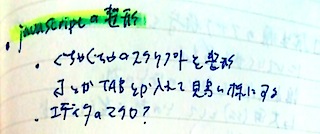 ・javascriptの整形
・ぐちゃぐちゃのスクリプトを整形
」とかTABとか入れて見易い様にする
・エディタのマクロ?